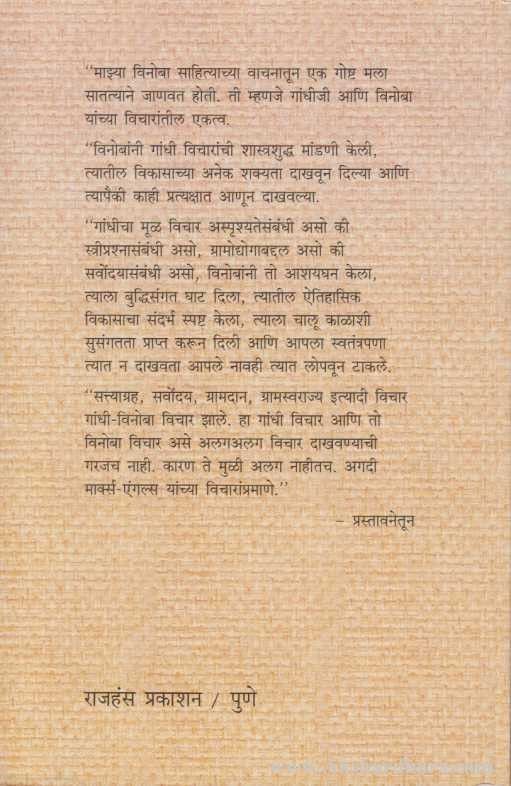 “माझ्या विनोबा साहित्याच्या वाचनातून एक गोष्ट मला
सातत्याने जाणवत होती. ती म्हणजे गांधीजी आणि विनोबा
यांच्या विचारांतील एकत्व.
“विनोबांनी गांधी विचारांची शास्त्रशुद्ध मांडणी केली,
त्यातील विकासाच्या अनेक शक्यता दाखवून दिल्या आणि
त्यापैकी काही प्रत्यक्षात आणून दाखवल्या.
“गांधीचा मूळ विचार अस्पृश्यतेसंबंधी असो की
स्त्रीप्रश्नासंबंधी असो, ग्रामोद्योगाबद्दल असो की
सर्वोदयासंबंधी असो, विनोबांनी तो आशयघन केला,
त्याला बुद्धिसंगत घाट दिला, त्यातील ऐतिहासिक
विकासाचा संदर्भ स्पष्ट केला, त्याला चालू काळाशी
सुसंगतता प्राप्त करून दिली आणि आपला स्वतंत्रपणा
त्यात न दाखवता आपले नावही त्यात लोपवून टाकले.
“सत्त्याग्रह, सर्वोदय, ग्रामदान, ग्रामस्वराज्य इत्यादी विचार
गांधी-विनोबा विचार झाले. हा गांधी विचार आणि तो
विनोबा विचार असे अलगअलग विचार दाखवण्याची
गरजच नाही. कारण ते मुळी अलग नाहीतच. अगदी
मार्क्स-एंगल्स यांच्या विचारांप्रमाणे.”
– प्रस्तावनेतून
राजहंस प्रकाशन / पुणे